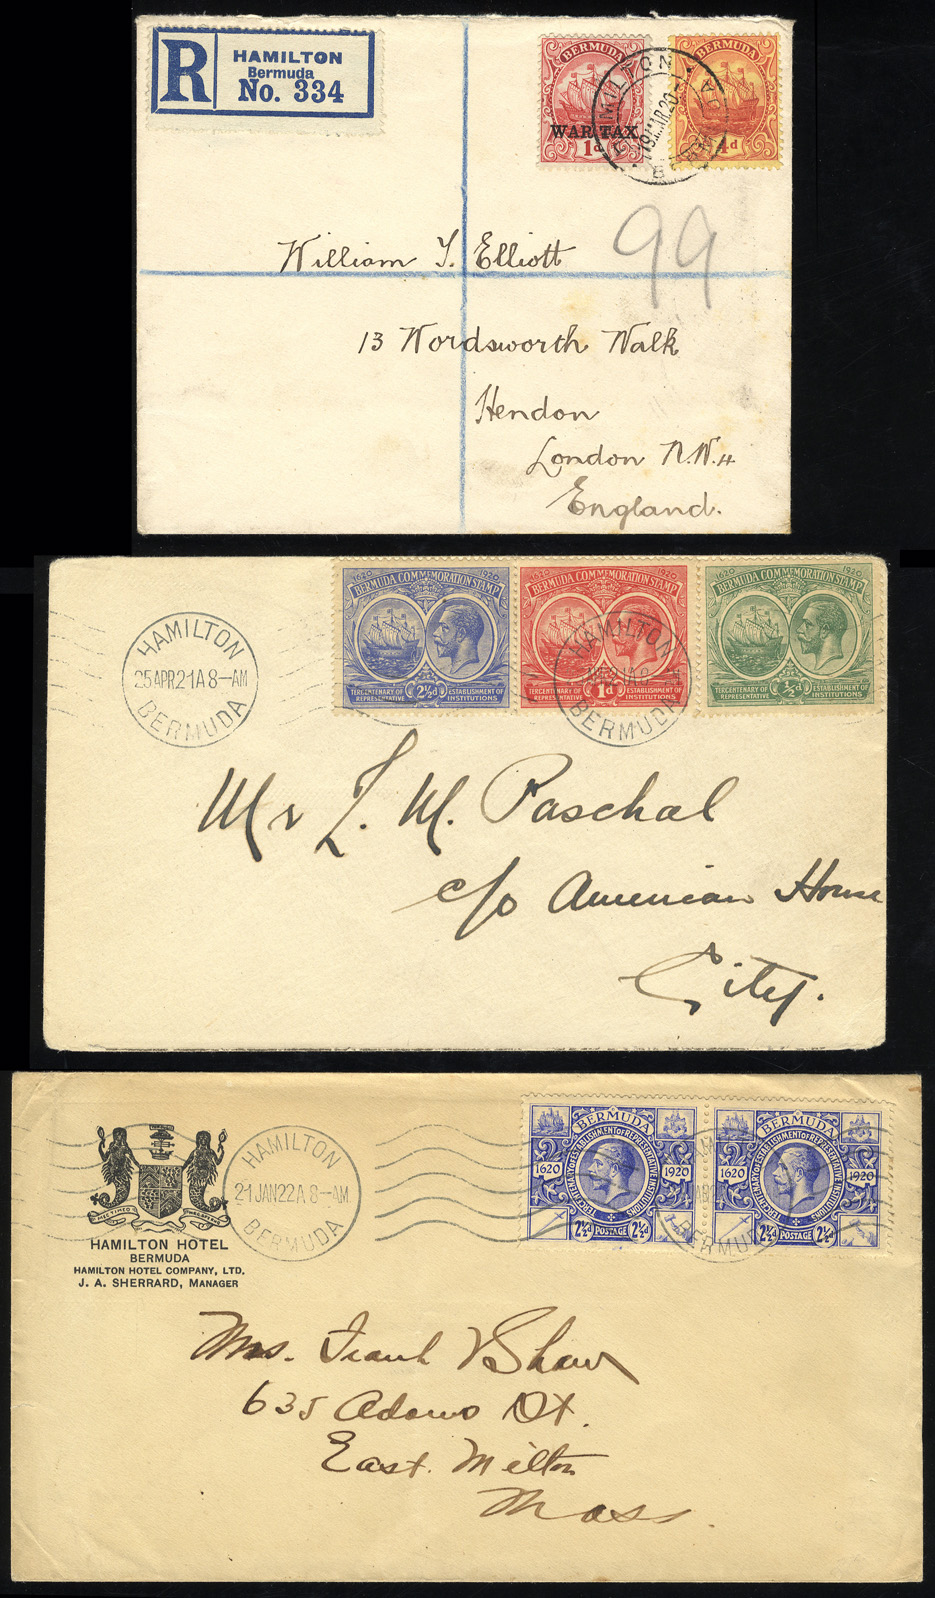 R
HAMILTON
Bermuda
No. 334
BERMUDA
WAR TAX
1d
BERMUDA
4d
HAMILTON
BERMUDA
99
William T. Elliott
13 Wordsworth Walk
Hendon
London N.W.4
England.
HAMILTON
25 APR 21 A 8-AM
BERMUDA
1620 1920
BERMUDA COMMEMORATION STAMP
TERCENTENARY OF REPRESENTATIVE
2½d
ESTABLISHMENT OF INSTITUTIONS
1620 1920
BERMUDA COMMEMORATION STAMP
TERCENTENARY OF REPRESENTATIVE
1d
ESTABLISHMENT OF INSTITUTIONS
1620 1920
BERMUDA COMMEMORATION STAMP
TERCENTENARY OF REPRESENTATIVE
½d
ESTABLISHMENT OF INSTITUTIONS
HAMILTON
BERMUDA
Mr L. M. Paschal
c/o American House
City.
HAMILTON HOTEL
BERMUDA
HAMILTON HOTEL COMPANY, LTD.
J. A. SHERRARD, MANAGER
HAMILTON
21 JAN 22 A 8-AM
BERMUDA
BERMUDA
TERCENTENARY OF ESTABLISHMENT OF REPRESENTATIVE INSTITUTIONS
1620 1920
2½d POSTAGE 2½d
BERMUDA
TERCENTENARY OF ESTABLISHMENT OF REPRESENTATIVE INSTITUTIONS
1620 1920
2½d POSTAGE 2½d
BERMUDA
Mrs. Frank Shaw
635 Adams St.
East Milton
Mass.